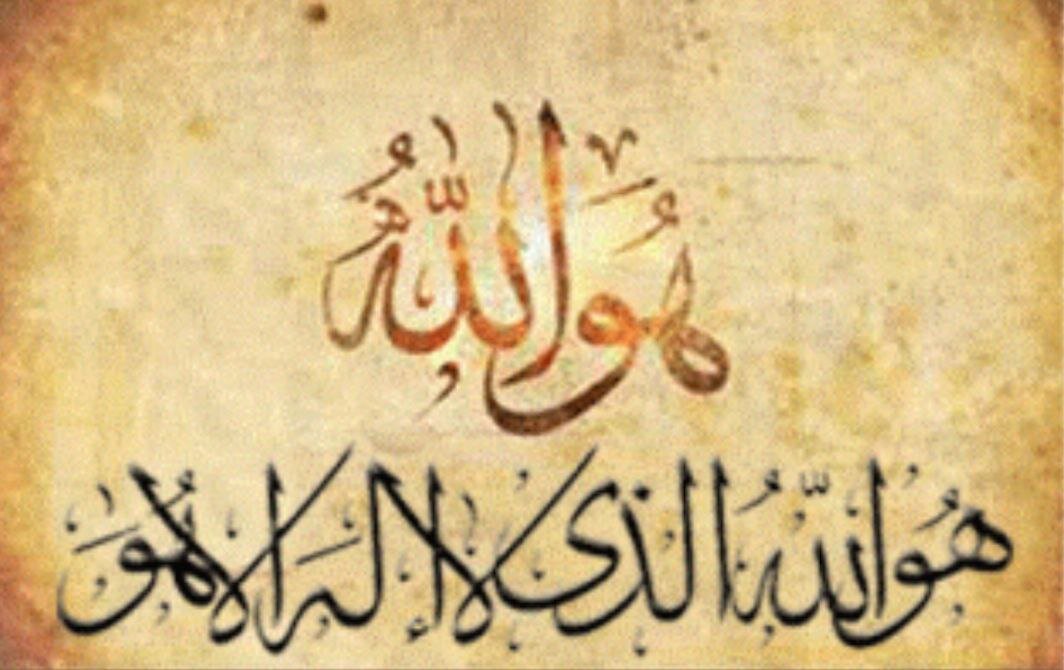 هُوَ اللّٰهُ
هُوَ اللّٰهُ الذی لا إله الا هُوَ